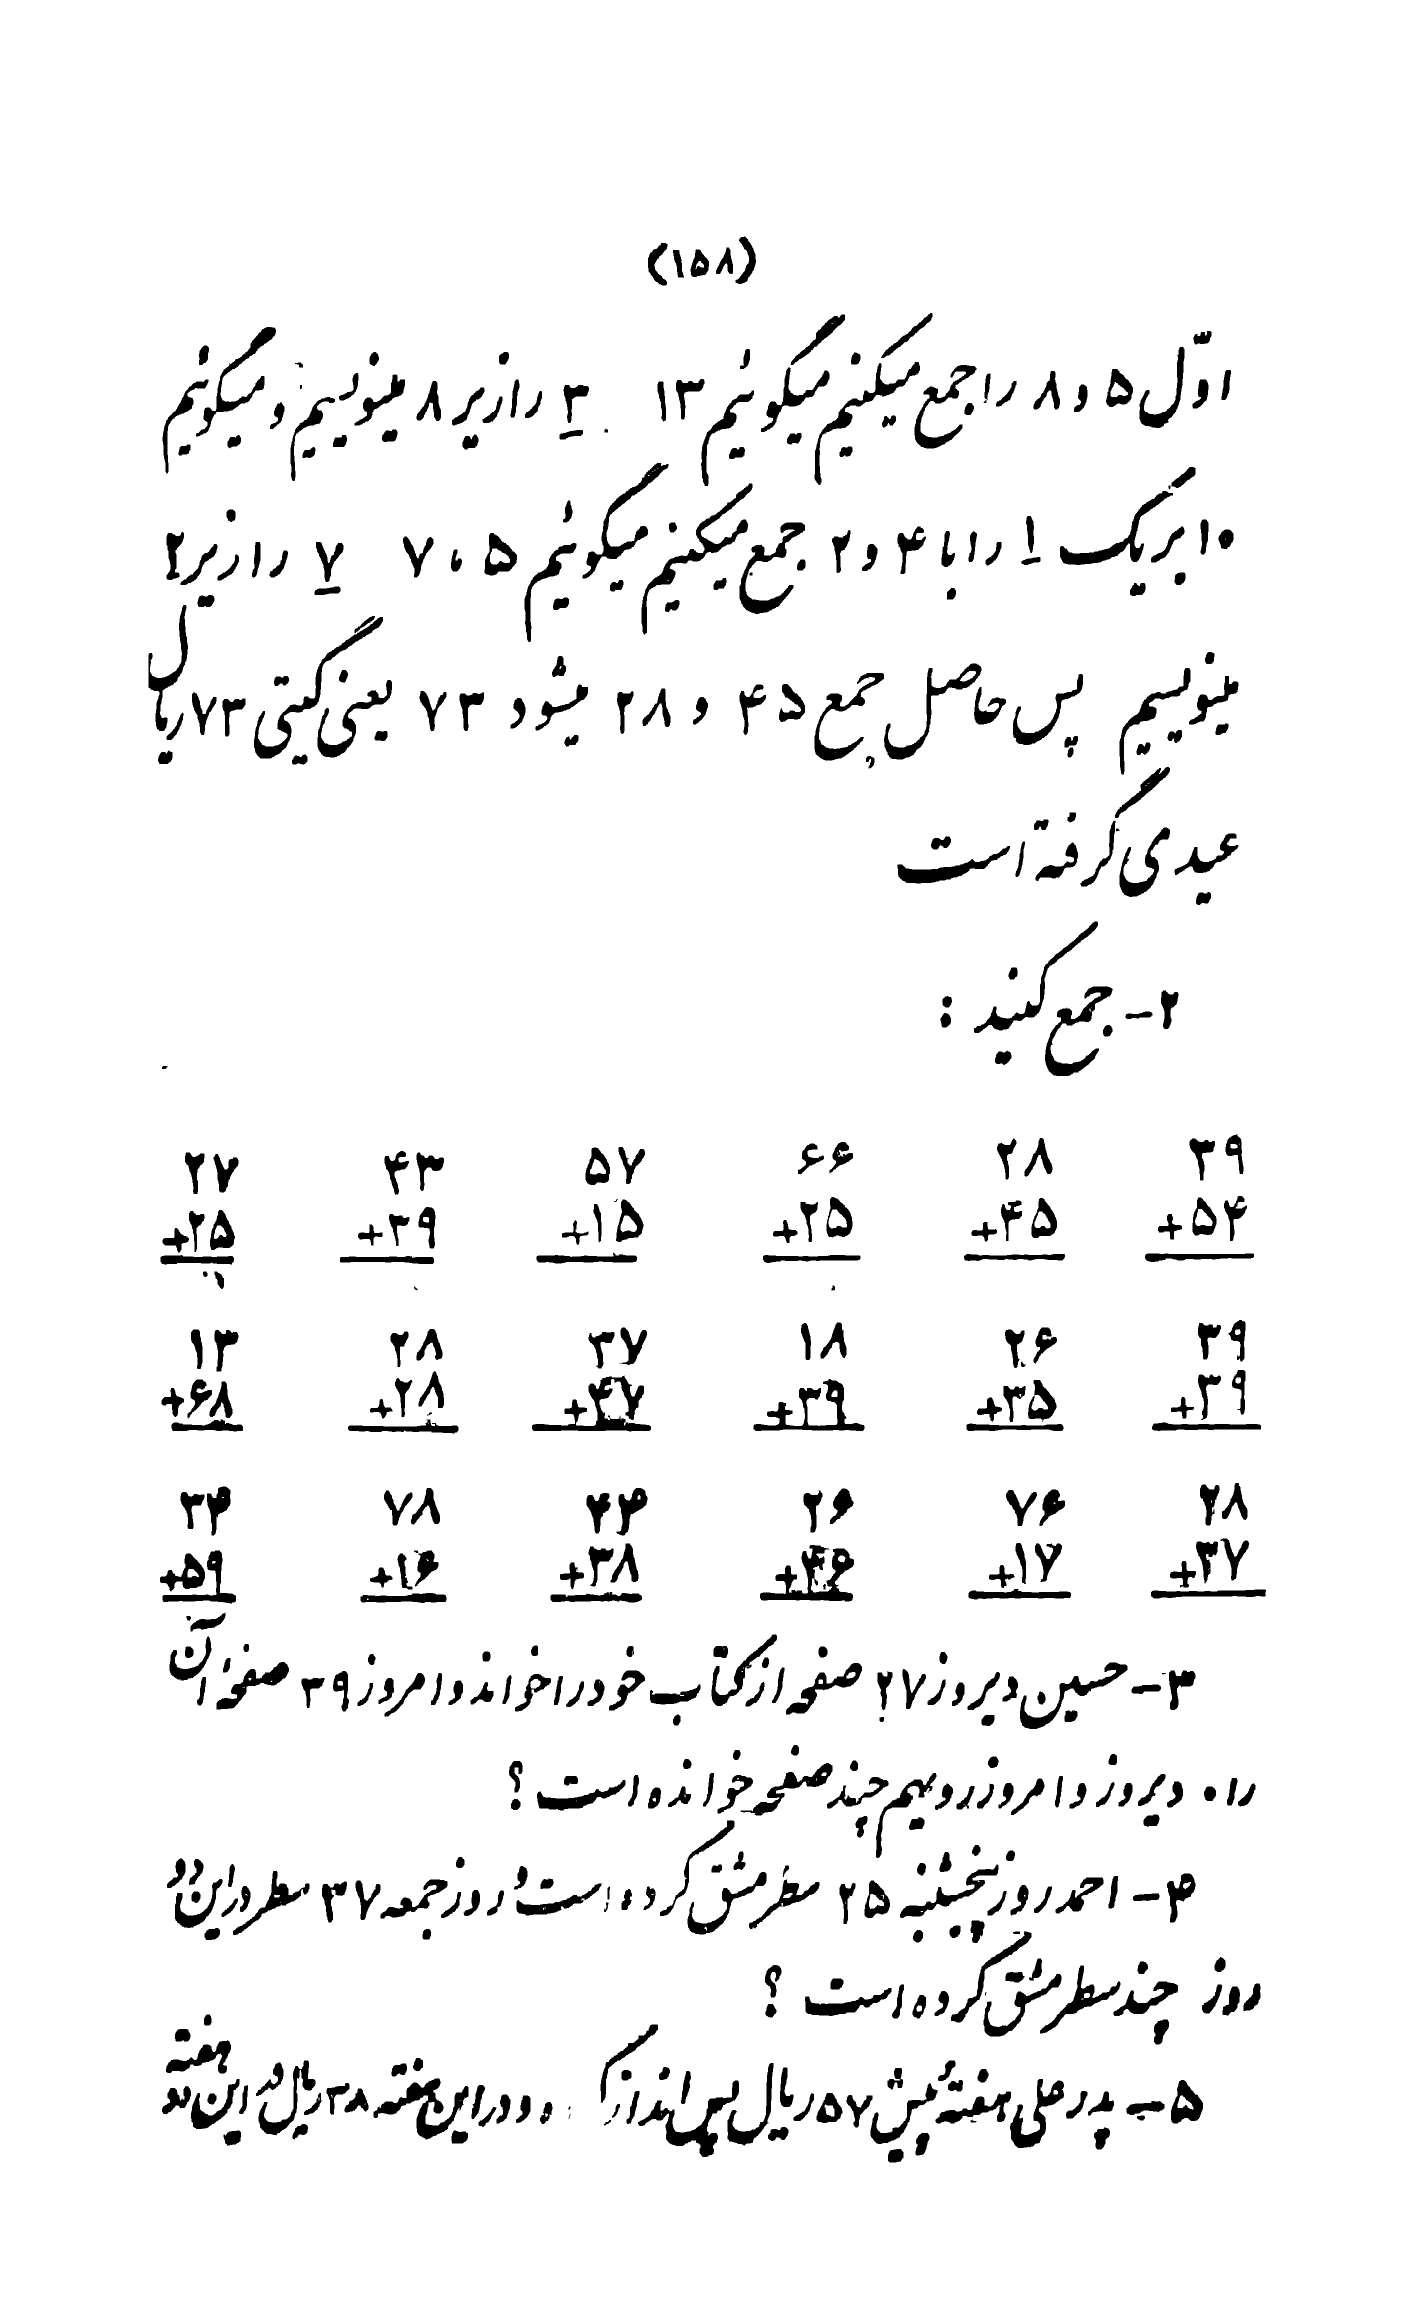 (۱۵۸)
اوّل ۵ و ۸ را جمع میکنیم میگوئیم ۱۳ ۳ را زیر ۸ مینویسیم و میگوئیم
۱۰ بر یک ۱ را با ۴ و ۲ جمع میکنیم میگوئیم ۵ ، ۷ ۷ را زیر ۲
مینویسیم پس حاصل جمع ۴۵ و ۲۸ میشود ۷۳ یعنی گیتی ۷۳ ریال
عیدی گرفته است
۲- جمع کنید :
۳۹ ۲۸ ۶۶ ۵۷ ۴۳ ۲۷
+۵۴ +۴۵ +۲۵ +۱۵ +۳۹ +۲۵
۳۹ ۲۶ ۱۸ ۳۷ ۲۸ ۱۳
+۳۹ +۳۵ +۳۹ +۴۷ +۲۸ +۶۸
۲۸ ۷۶ ۲۶ ۴۴ ۷۸ ۳۴
+۳۷ +۱۷ +۴۶ +۳۸ +۱۶ +۵۹
۳- حسین دیروز ۲۷ صفحه از کتاب خود را خواند و امروز ۳۹ صفحهٔ آن
را. دیروز و امروز رویهم چند صفحه خوانده است ؟
۴- احمد روز پنجشنبه ۲۵ سطر مشق کرده است و روز جمعه ۳۷ سطر در این دو
روز چند سطر مشق کرده است ؟
۵- پدر علی هفتهٔ پیش ۵۷ ریال پس انداز و در این هفته ۳۸ ریال در این دو هفته